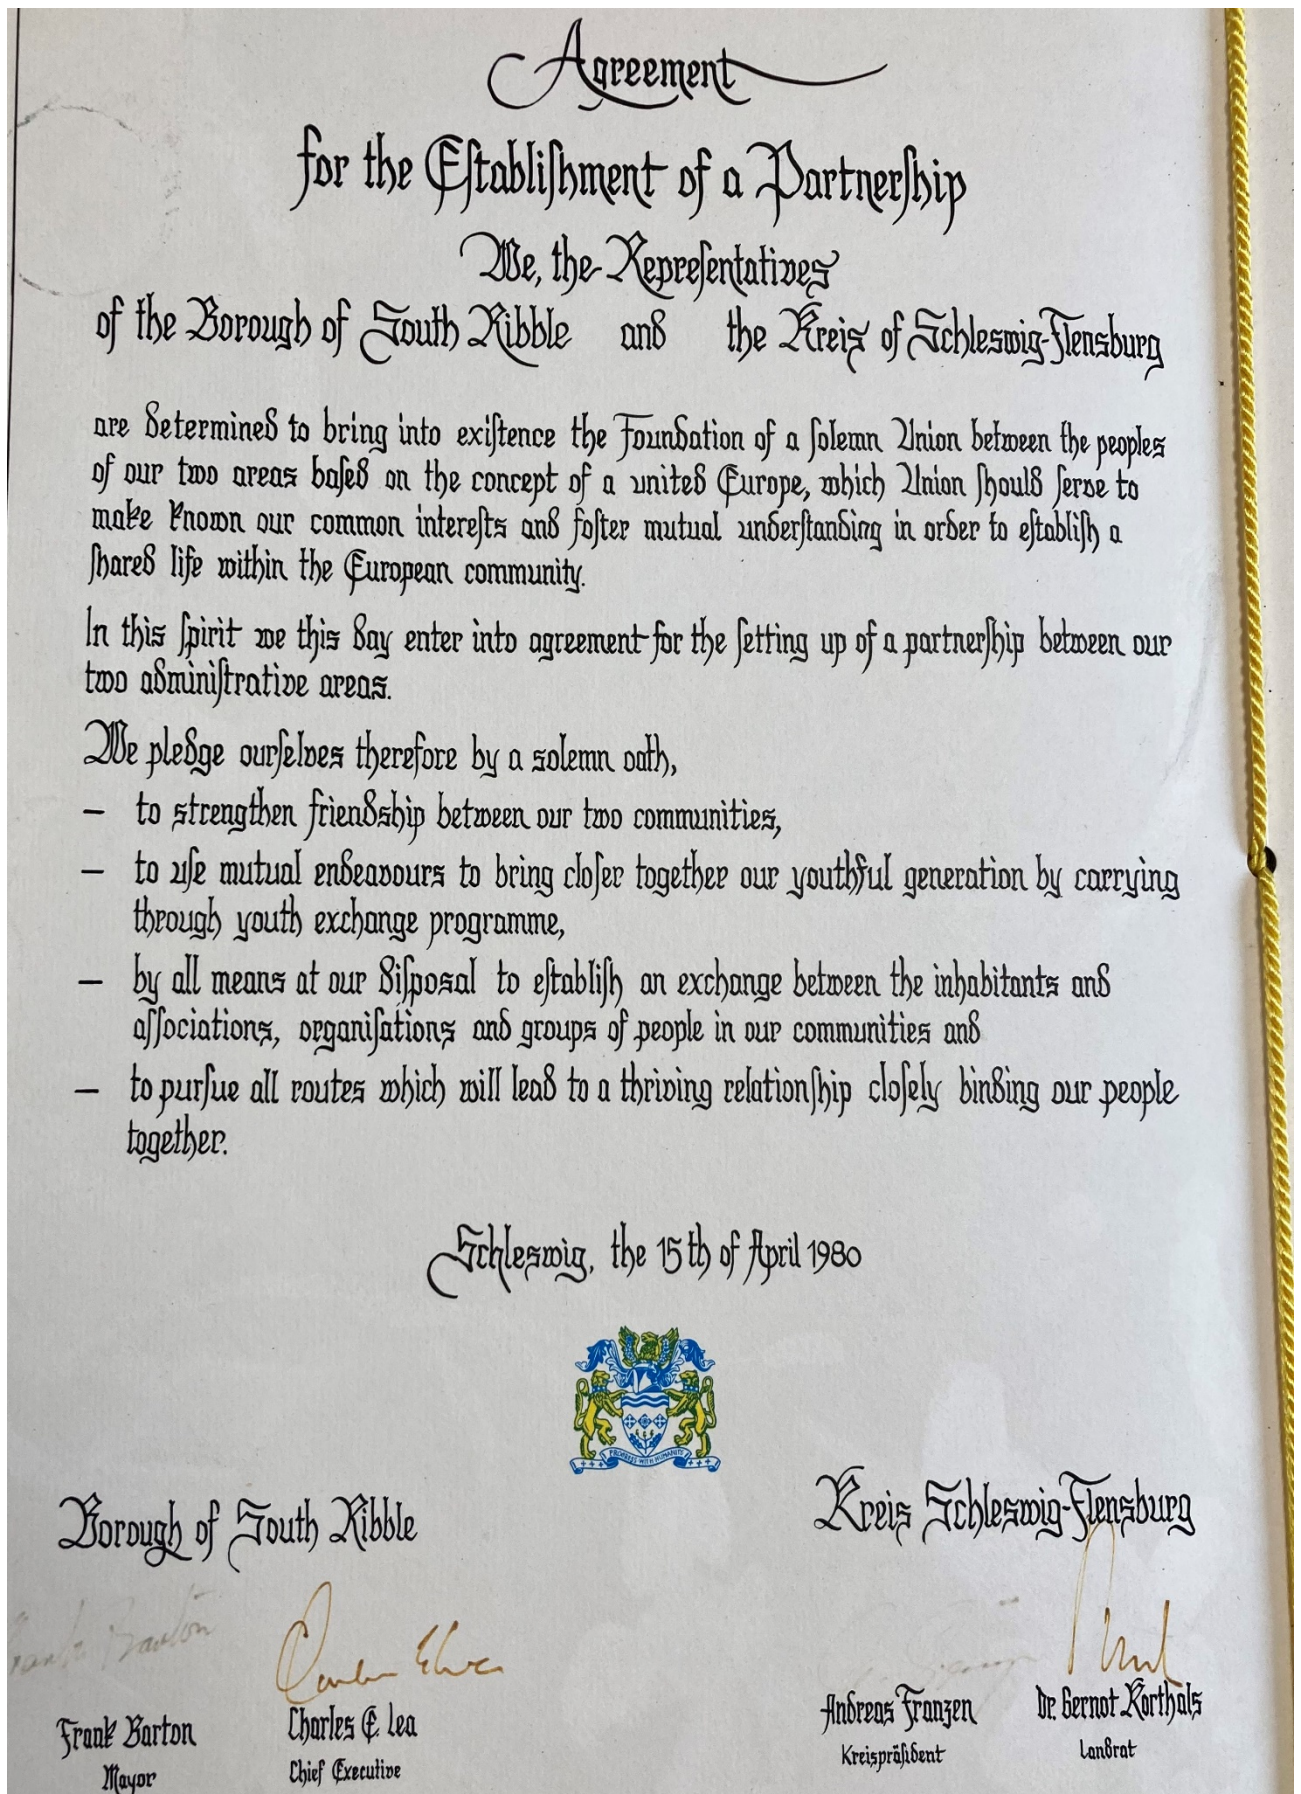 Agreement
for the Eſtabliſhment of a Partnerſhip
We, the Repreſentatives
of the Borough of South Ribble and the Kreis of Schleswig-Flensburg
are determined to bring into exiſtence the Foundation of a ſolemn Union between the peoples
of our two areas baſed on the concept of a united Europe, which Union ſhould ſerve to
make known our common intereſts and foſter mutual underſtanding in order to eſtabliſh a
ſhared life within the European community.
In this ſpirit we this day enter into agreement for the ſetting up of a partnerſhip between our
two adminiſtrative areas.
We pledge ourſelves therefore by a solemn oath,
– to strengthen friendship between our two communities,
– to uſe mutual endeavours to bring cloſer together our youthful generation by carrying
through youth exchange programme,
– by all means at our diſposal to eſtabliſh an exchange between the inhabitants and
aſſociations, organiſations and groups of people in our communities and
– to purſue all routes which will lead to a thriving relationſhip cloſely binding our people
together.
Schleswig, the 15th of April 1980
PROGRESS WITH HUMANITY
Borough of South Ribble Kreis Schleswig-Flensburg
Frank Barton
Frank Barton Charles E. Lea Andreas Franzen Dr. Gernot Korthals
Mayor Chief Executive Kreispräſident Landrat